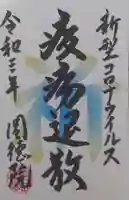 新型コロナウイルス
疫病退散
令和三年
圓徳院